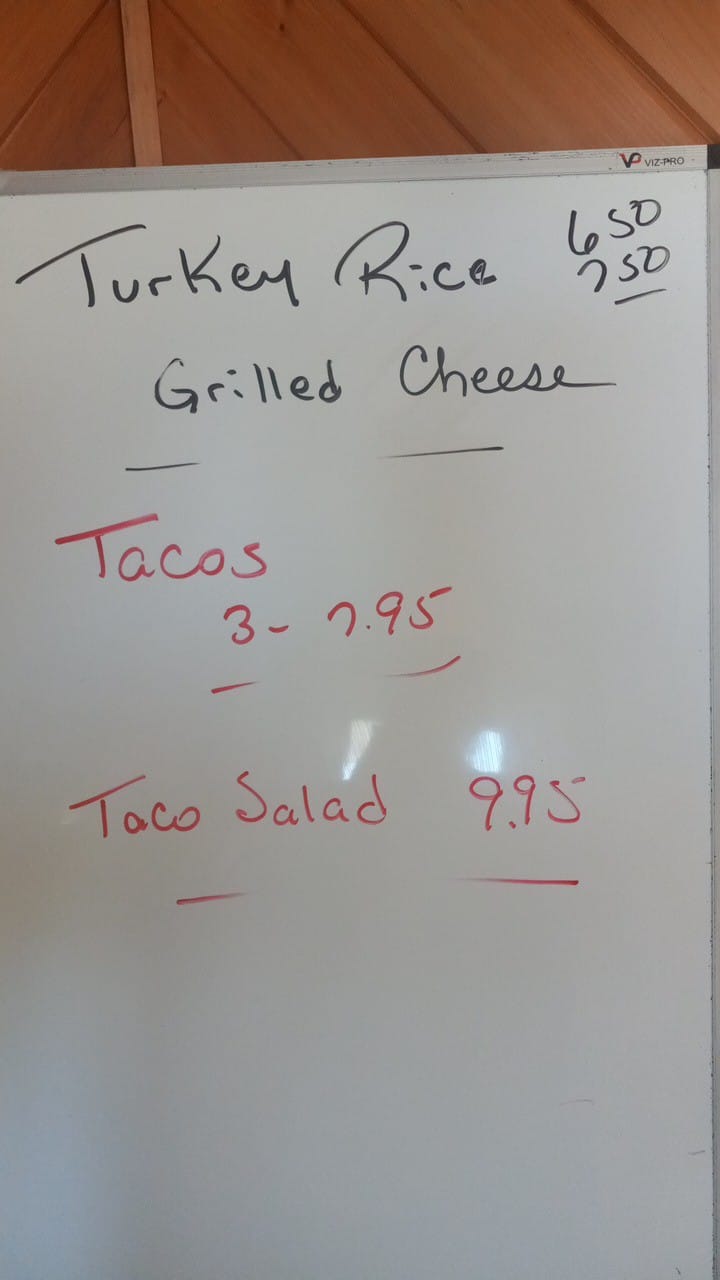 VP VIZ-PRO
Turkey Rice 650
750
Grilled Cheese
Tacos
3- 7.95
Taco Salad 9.95